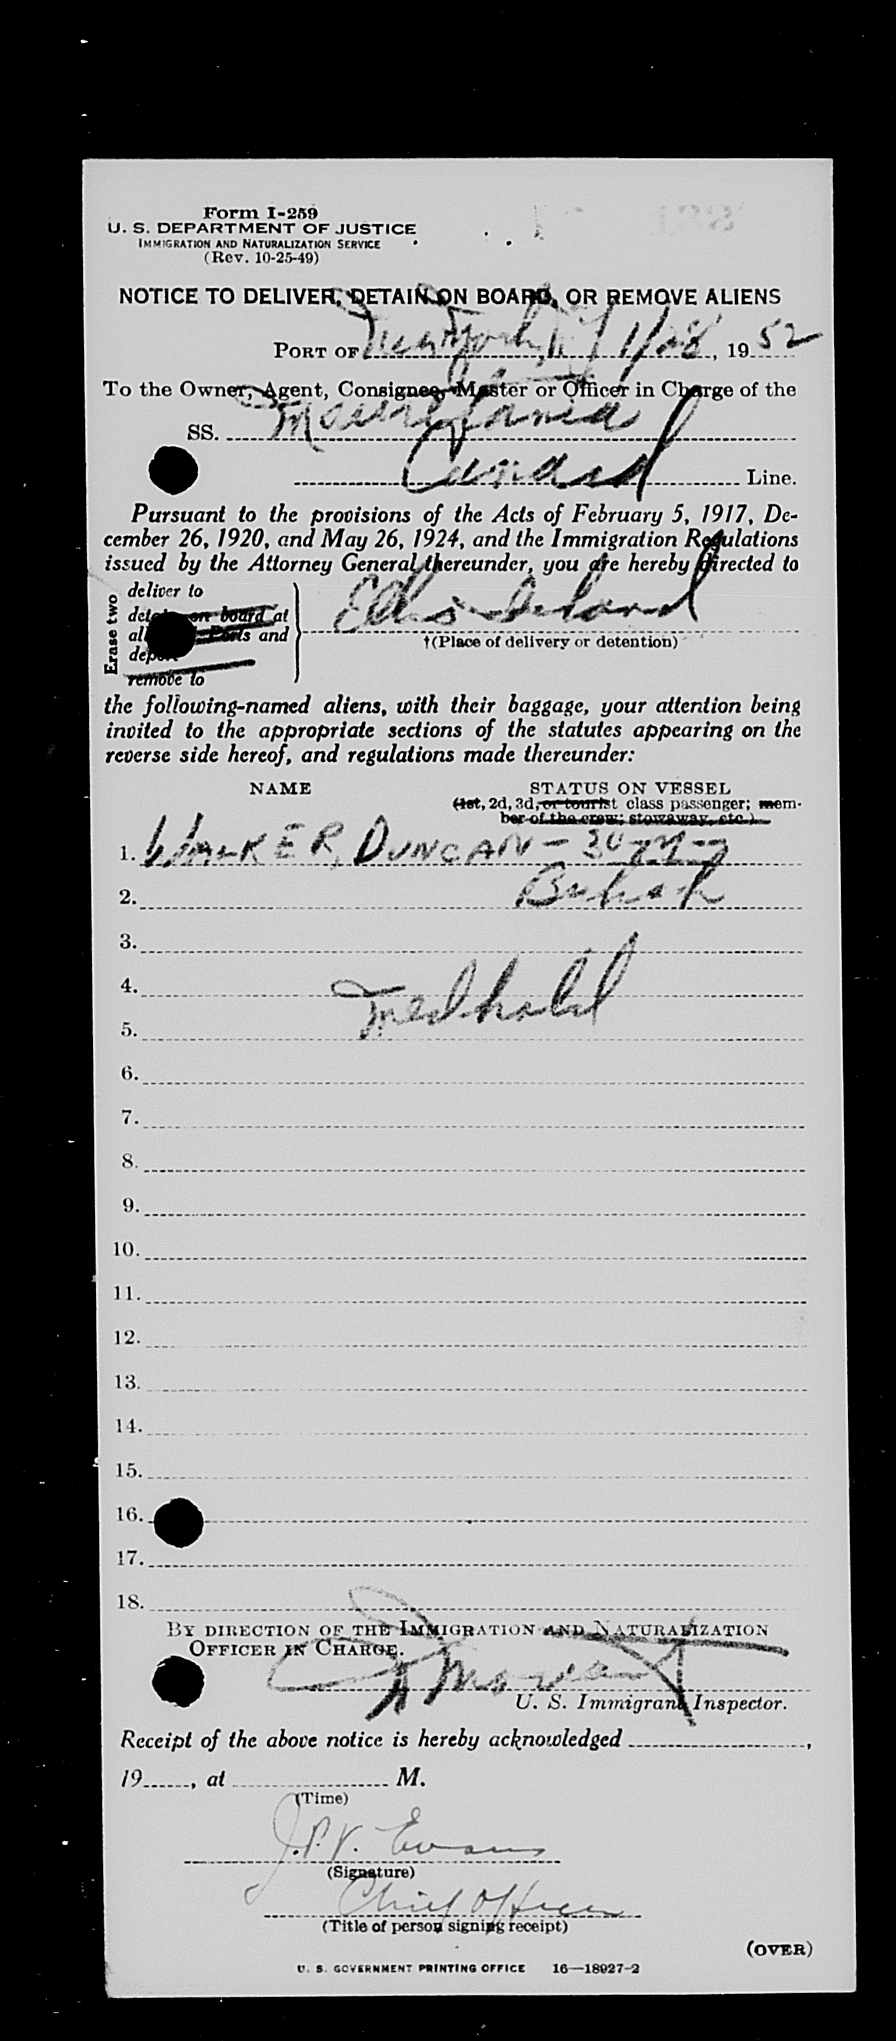 Form I-259
U. S. DEPARTMENT OF JUSTICE
IMMIGRATION AND NATURALIZATION SERVICE
(Rev. 10-25-49)
NOTICE TO DELIVER, DETAIN ON BOARD, OR REMOVE ALIENS
PORT OF New York, N Y 1/28, 1952
To the Owner, Agent, Consignee, Master or Officer in Charge of the
SS. Mauretania
Cunard Line.
Pursuant to the provisions of the Acts of February 5, 1917, De-
cember 26, 1920, and May 26, 1924, and the Immigration Regulations
issued by the Attorney General thereunder, you are hereby directed to
Erase two
deliver to
on board at
Ports and
remove to
Ellis Island
†(Place of delivery or detention)
the following-named aliens, with their baggage, your attention being
invited to the appropriate sections of the statutes appearing on the
reverse side hereof, and regulations made thereunder:
NAME STATUS ON VESSEL
(1st, 2d, 3d, or tourist class passenger; mem-
ber of the crew; stowaway, etc.)
1. WALKER, DUNCAN - 30
2. British
3.
4. Med hold
5.
6.
7.
8.
9.
10.
11.
12.
13.
14.
15.
16.
17.
18.
BY DIRECTION OF THE IMMIGRATION AND NATURALIZATION
OFFICER IN CHARGE.
U. S. Immigrant Inspector.
Receipt of the above notice is hereby acknowledged ,
19 , at M.
(Time)
J.P.V. Evans
(Signature)
Chief Officer
(Title of person signing receipt)
(OVER)
U. S. GOVERNMENT PRINTING OFFICE 16—18927-2